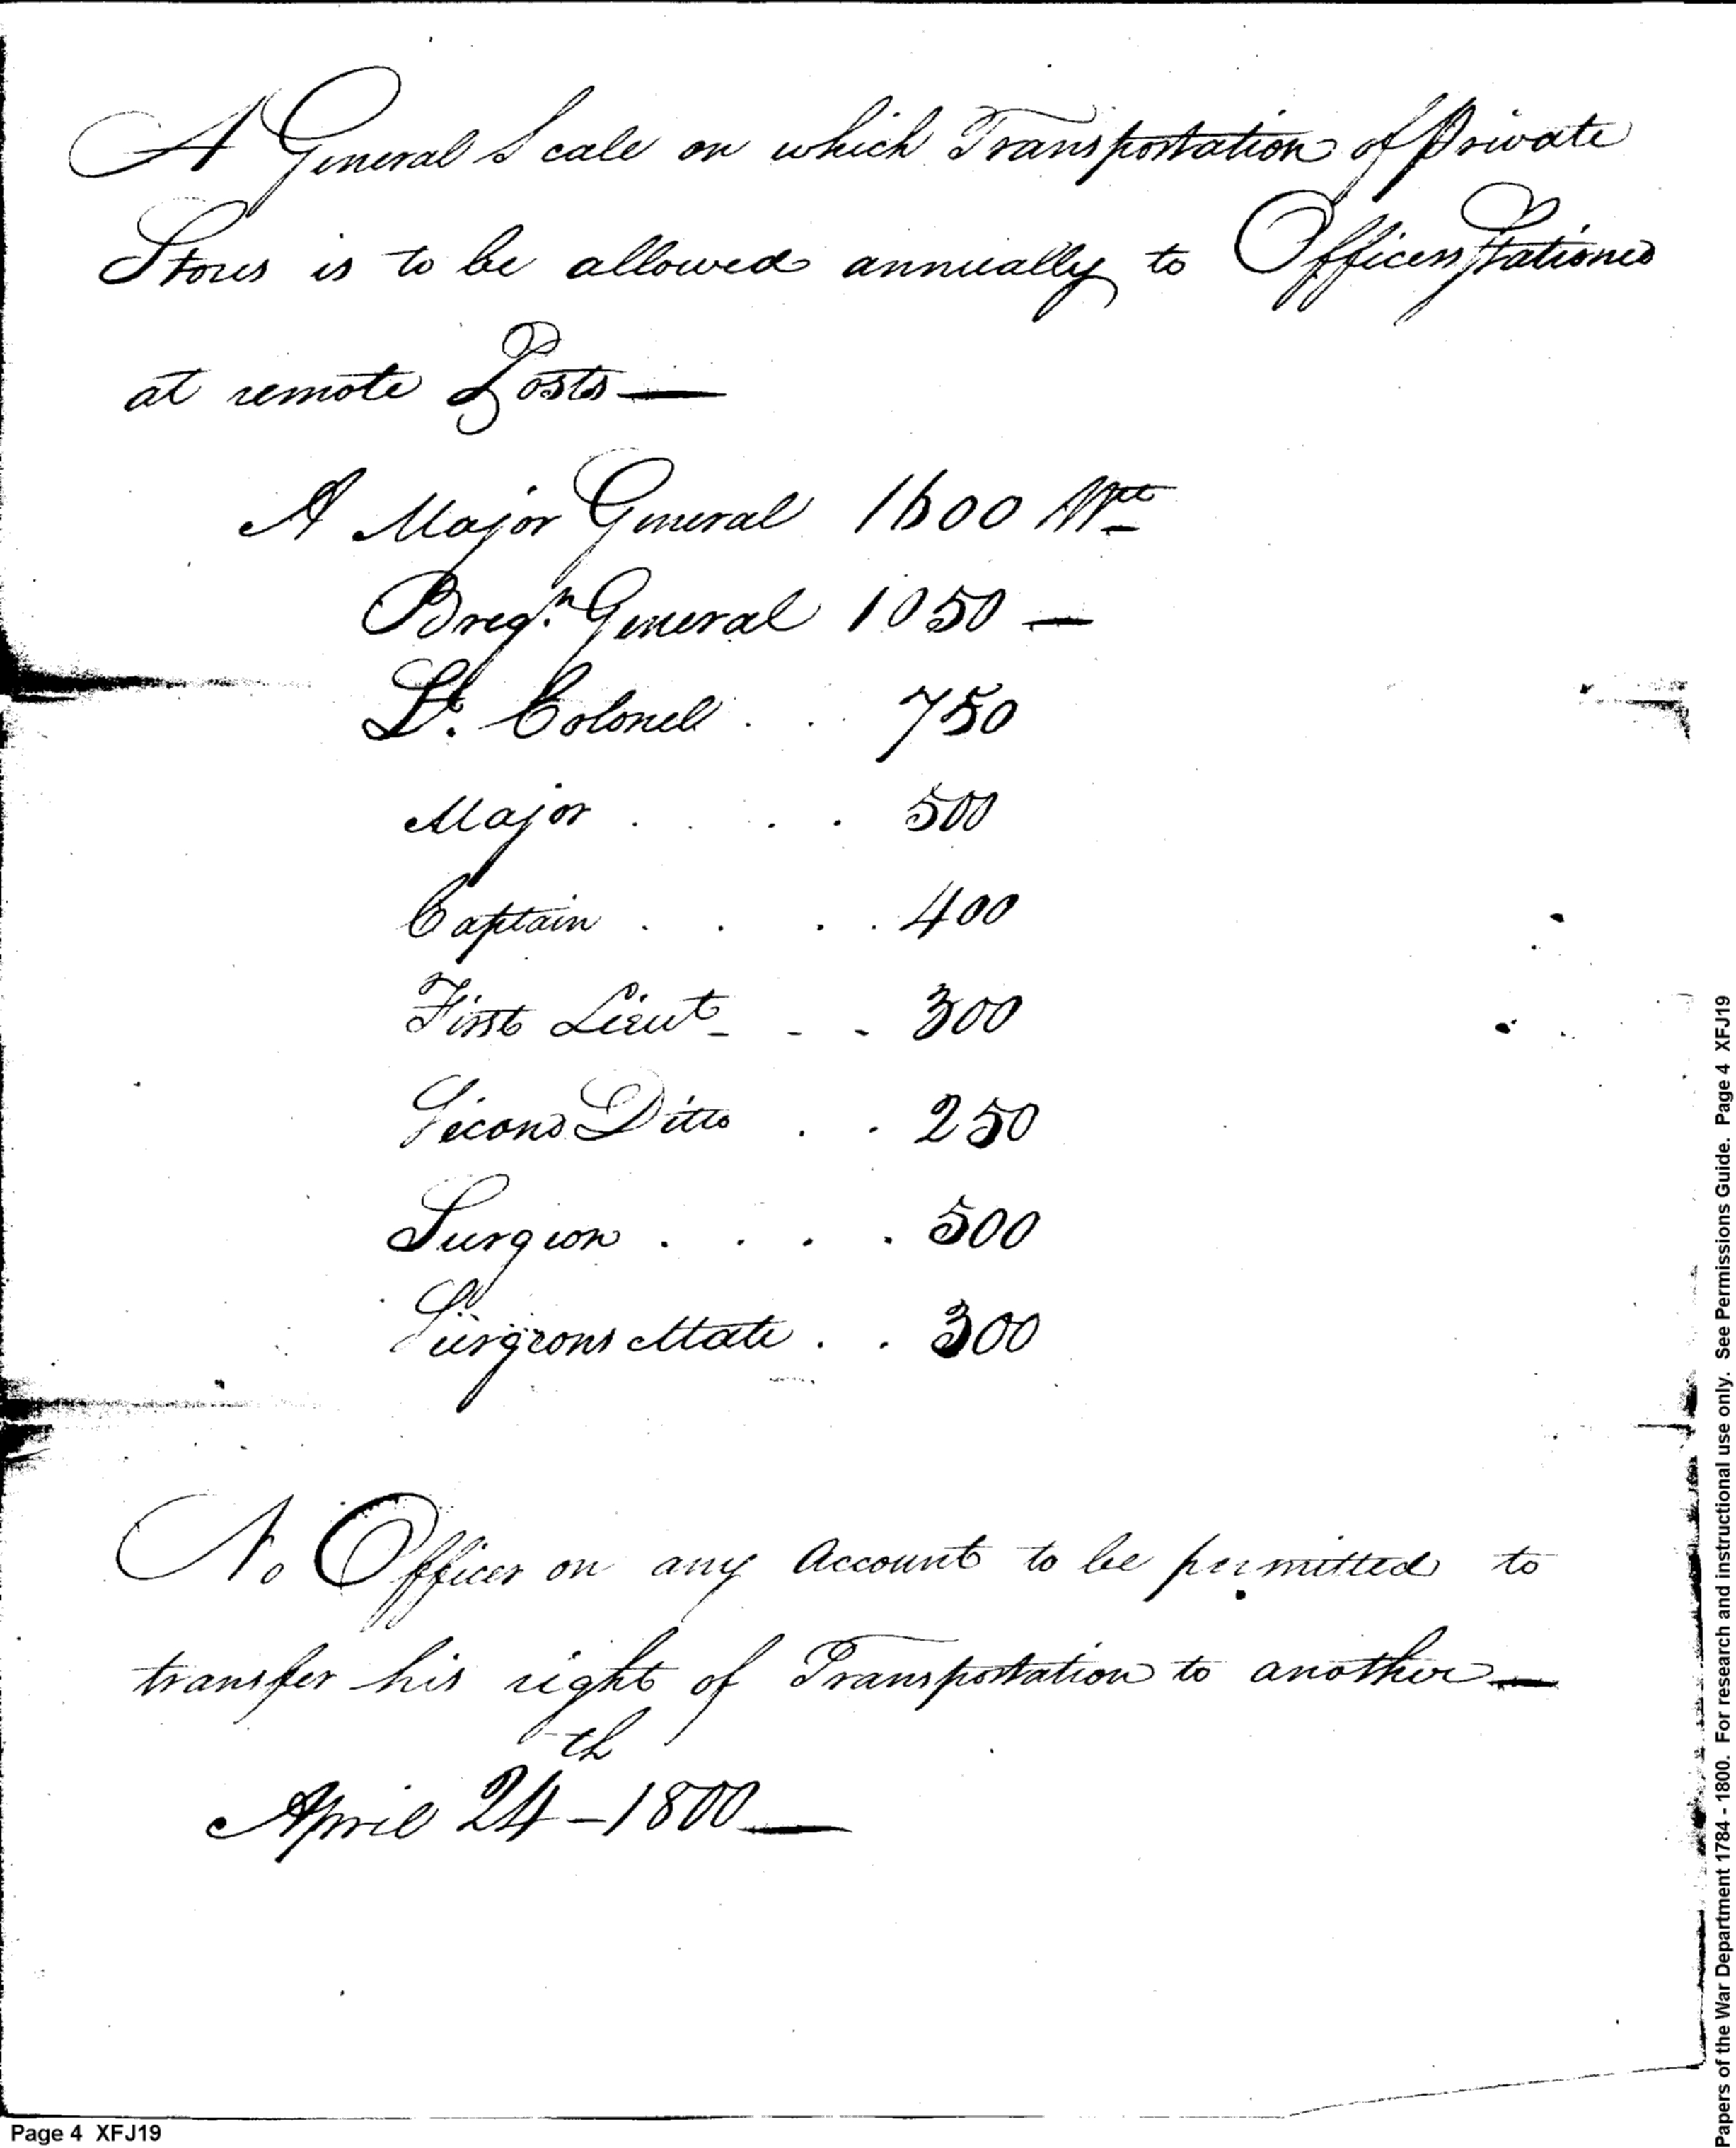 A General Scale on which Transportation of Private
Stores is to be allowed annually to Officers Stationed
at remote Posts —
A Major General 1600 Wt
Bregr. General 1050 —
Lt. Colonel . . . 750
Major . . . . 500
Captain . . . . 400
First Lieut - - - 300
Second Ditto . . 250
Surgeon . . . . 500
Surgeons Mate . . 300
No Officer on any Account to be permitted to
transfer his right of Transportation to another —
April 24th - 1800 —
Page 4 XFJ19
Papers of the War Department 1784 - 1800. For research and instructional use only. See Permissions Guide. Page 4 XFJ19